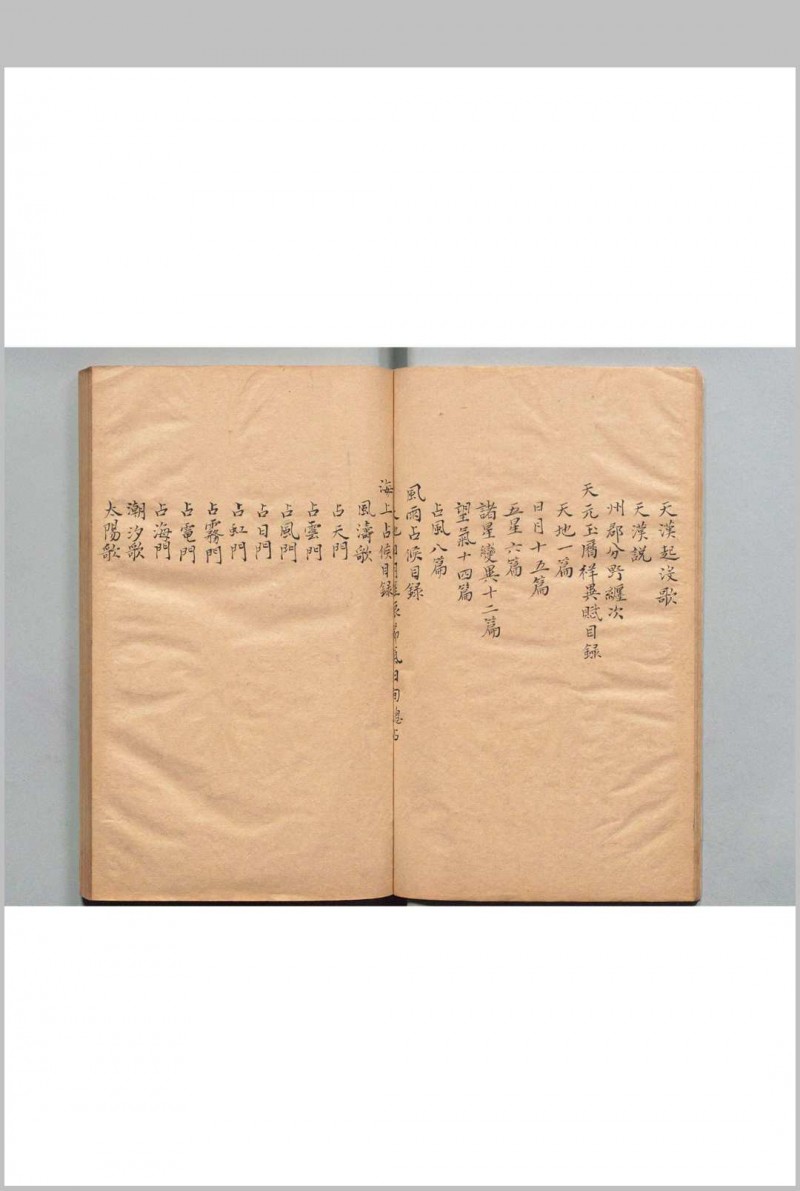 天漢起沒歌
天漢說
州郡分野纏次
天元玉曆祥異賦目錄
天地一篇
日月十五篇
五星六篇
諸星變異十二篇
望氣十四篇
占風八篇
風雨占候目錄
海上占候目錄
風濤歌
占天門
占雲門
占風門
占日門
占虹門
占霧門
占電門
占海門
潮汐歌
太陽歌